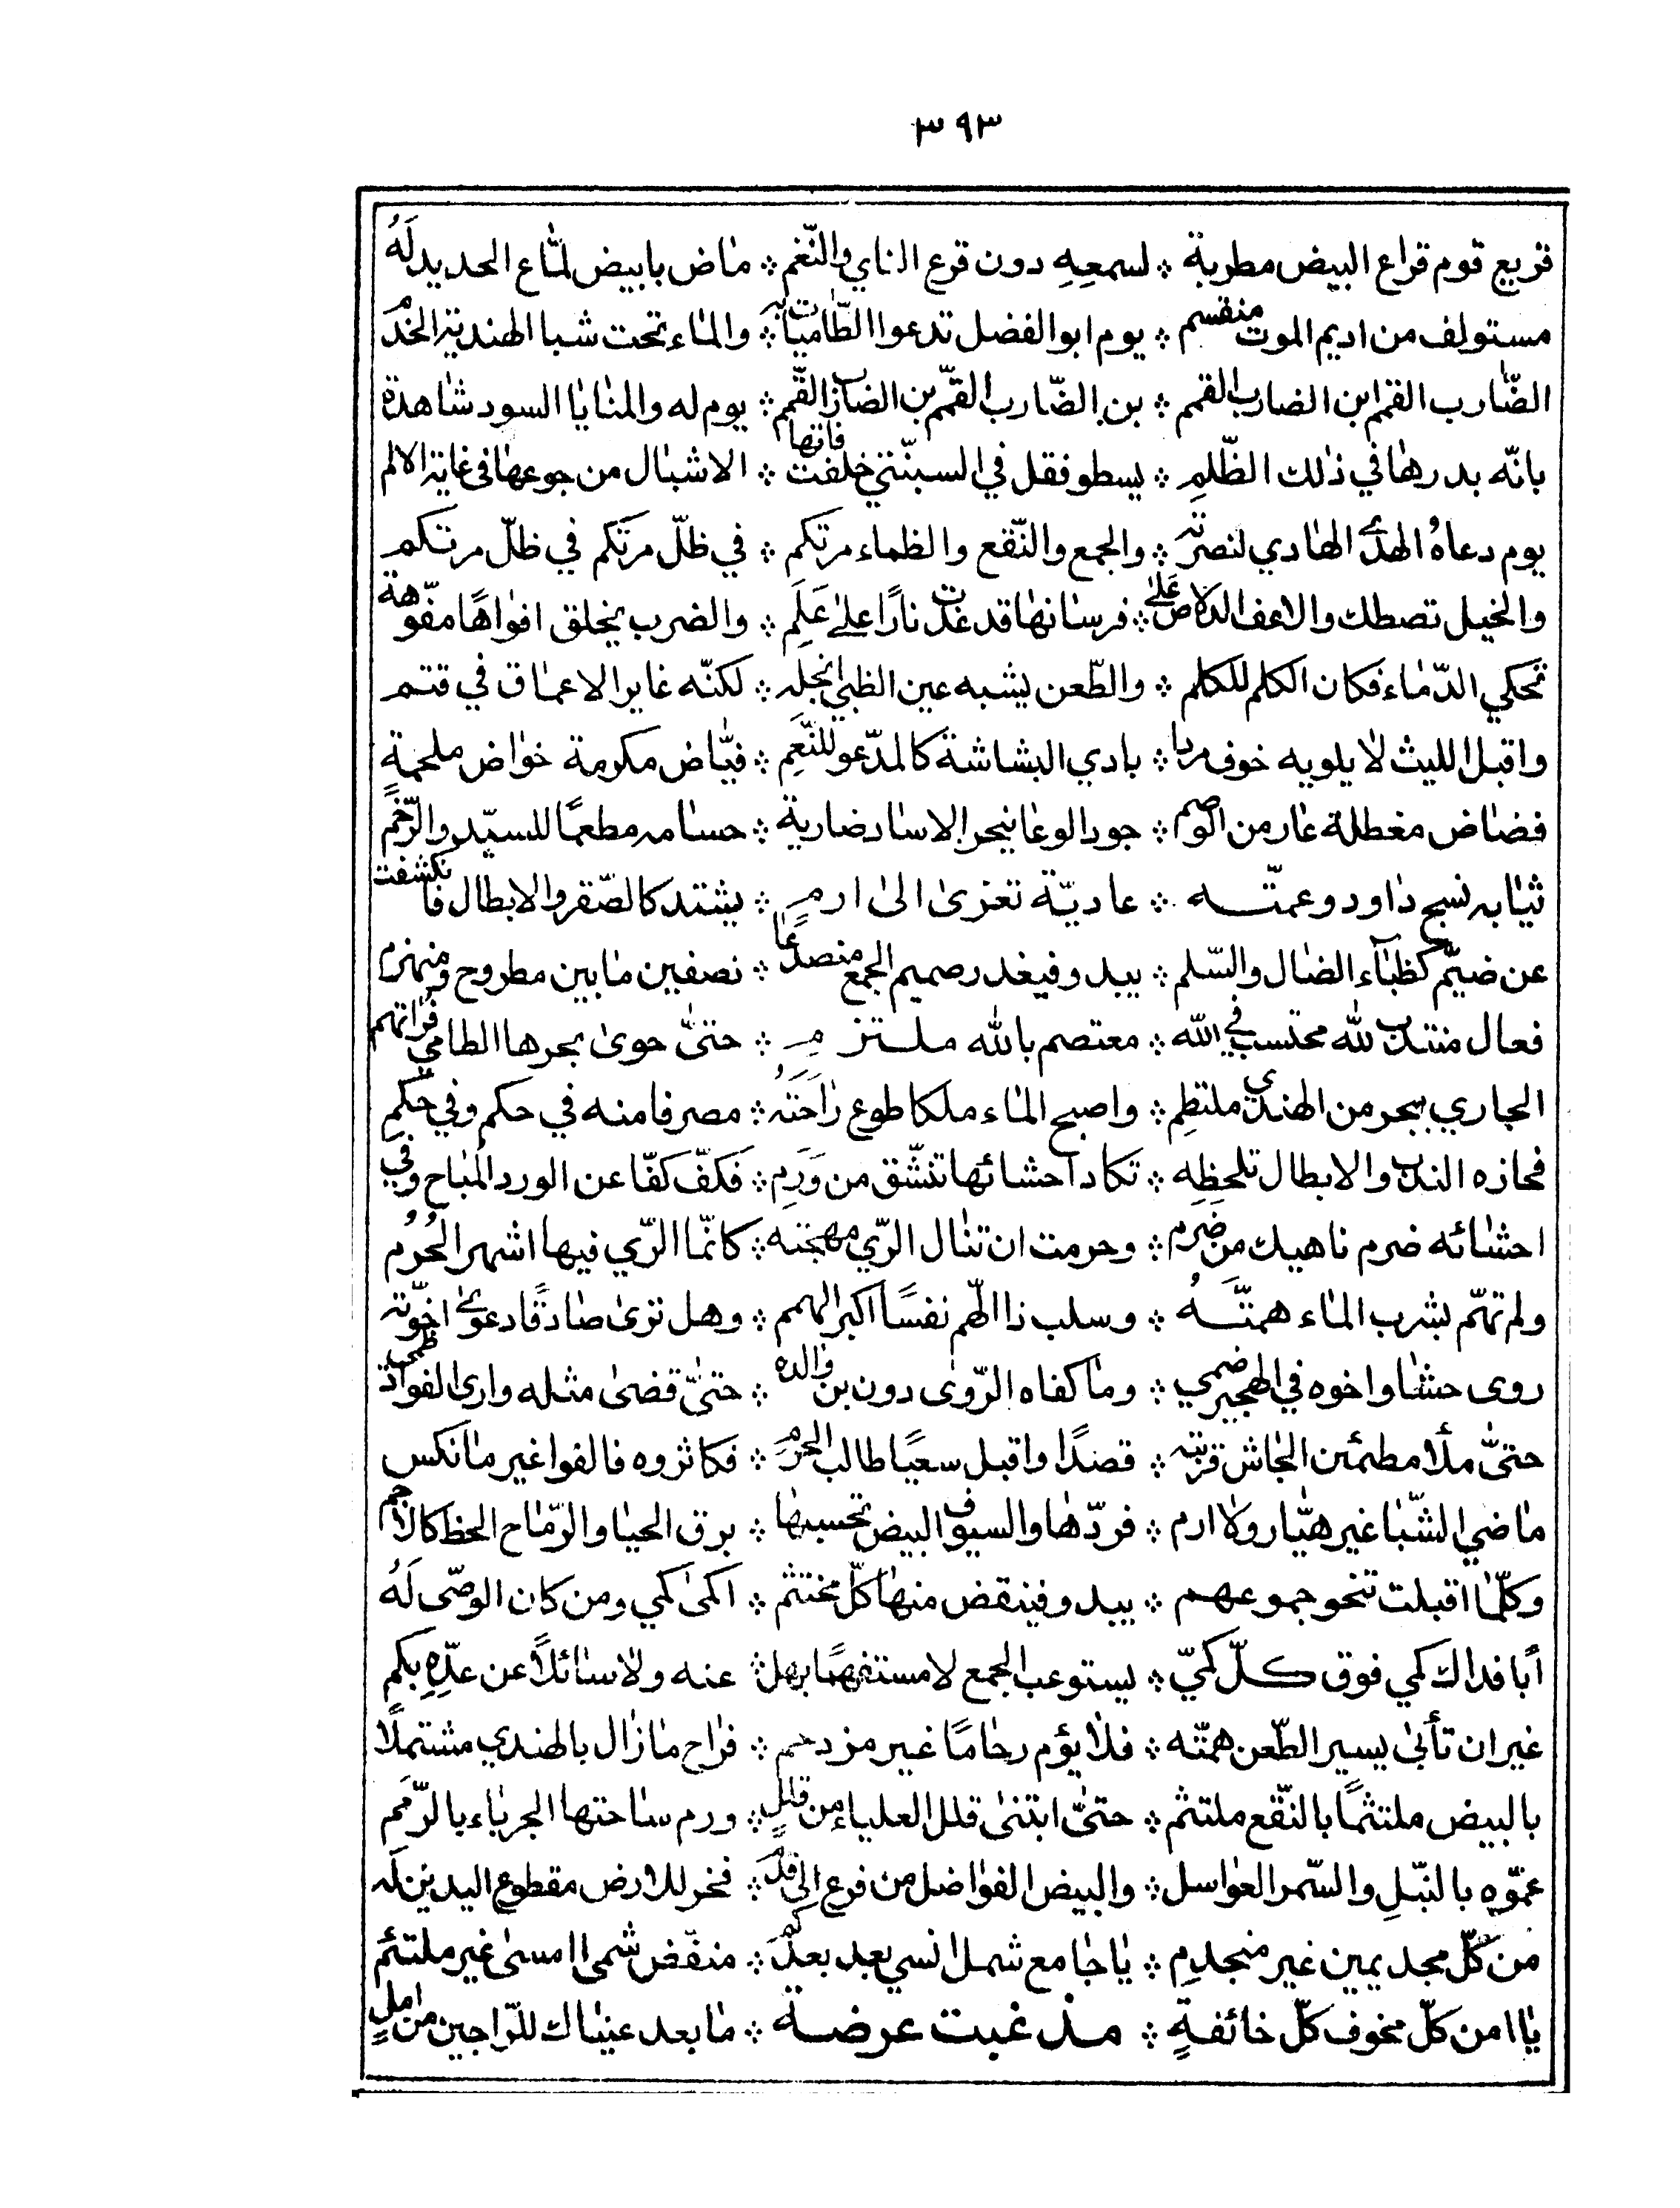 ٣٩٣
قريع قوم قراع البيض مطربة ⁘ لسمعِهِ دون قرع الناي والنّغم ⁘ ماض بابيض لمّاع الحديد لَهُ
مستولف من اديم الموت منقسم ⁘ يوم ابوالفضل تدعوا الظّاميات به ⁘ والماء تحت شبا الهندية الخذم
الضّارب القمم ابن الضارب القمم ⁘ بن الضّارب القمّم بن الضارب القمم ⁘ يوم له والمنايا السود شاهدة
بانّه بدرها في ذلك الظّلمِ ⁘ يسطو فقل في السبنّتي خلفت فاتها ⁘ الاشبال من جوعها في غاية الالم
يوم دعاهُ الهدىٰ الهادي لنصرته ⁘ والجمع والنّقع والظماء مرتكم ⁘ في ظلّ مرتكم في ظلّ مرتكم
والخيل تصطك والاعف الدلاص عَلىٰ ⁘ فرسانها قد غدت نارًا علىٰ عَلَمِ ⁘ والضرب يخلق افواهًا مفوّهة
تحكي الدّماء فكان الكلم للكلم ⁘ والطّعن يشبه عين الظبي انجله ⁘ لكنّه غاير الاعماق في قتم
واقبل الليث لا يلويه خوف ردا ⁘ بادي البشاشة كالمدّعو للنّعِم ⁘ فيّاض مكرمة خوّاض ملحمةٍ
فضاض مغطلة عار من الوصم ⁘ جود الوغا ينجر الاساد ضارية ⁘ حسامه مطعمًا للسيّد والرّخمِ
ثيابه نسج داود وعمتّه ⁘ عاديّة تعزى الىٰ ارم ⁘ يشتد كالصّقر والابطال فانكشفت
عن ضيّم كظباء الضال والسّلم ⁘ يبدو فيغدر صميم الجمع منصدعًا ⁘ نصفين ما بين مطروح ومنهزم
فعال منتدب لله محتسب في الله ⁘ معتصم بالله ملتزم ⁘ حتىّٰ حوىٰ بحرها الطامي فراتهم
الجاري ببحر من الهندي ملتطِم ⁘ واصبح الماء ملكا طوع راحَتهُ ⁘ مصرفا منه في حكم وفي حكم
فحازه الندب والابطال تلحظِه ⁘ تكاد احشائها تنشّق من وَرَمِ ⁘ فكفّ كفّا عن الورد المُباح وفي
احشائه ضرم ناهيك من ضَرم ⁘ وحرمت ان تنال الرّي مهجته ⁘ كانمّا الرّي فيها اشهر الحُرُم
ولم تهمّ بشرب الماء همتّهُ ⁘ وسلب ذا الهّم نفسًا اكبر الهمم ⁘ وهل ترىٰ صادقًا دعوىٰ اخوّته
روى حشا واخوه في الهجير ضمي ⁘ وما كفاه الرّوىٰ دون بن والده ⁘ حتىّٰ قضىٰ مثله وارى الفواد ظمي
حتىّٰ ملأ مطمئن الجاش قربته ⁘ قصدًا واقبل سعيًا طالب الحرم ⁘ فكاثروه فالفوا غير ما نكس
ماضي الشّبا غير هيّار ولا ارم ⁘ فردّها والسيوف البيض تحسبها ⁘ برق الحيا والرّماح الخط كالاجم
وكلّما اقبلت تنحو جموعهم ⁘ يبدو فينقض منها كلّ مختثم ⁘ اكمىٰ كمي ومن كان الوصّى لَهُ
أبا فداك كمي فوق كلّ كميّ ⁘ يستوعب الجمع لا مستفهمًا بهل ⁘ عنه ولا سائلاً عن عدّهِ بكمِ
غير ان تأبىٰ يسير الطّعن همتّه ⁘ فلا يؤم رحامًا غير مزدحم ⁘ فراح مازال بالهندي مشتملًا
بالبيض ملتثمًا بالنّقع ملتثم ⁘ حتىّٰ ابتنىٰ قلل العلياء من قللٍ ⁘ ورم ساحتها الجرباء بالرّمم
عمّوه بالنّبلِ والسّمر العواسل ⁘ والبيض الفواضل من فرع الى قدمٍ ⁘ فخر للارض مقطوع اليدين لَه
من كلّ مجد يمين غير منجدمِ ⁘ يا جامع شمل انسي بعد بعدكم ⁘ منفّض شملي امسىٰ غير ملتئم
يا امن كلّ مخوف كلّ خائفةٍ ⁘ مذ غبت عرضة ⁘ ما بعد عيناك للرّاجين من املٍ